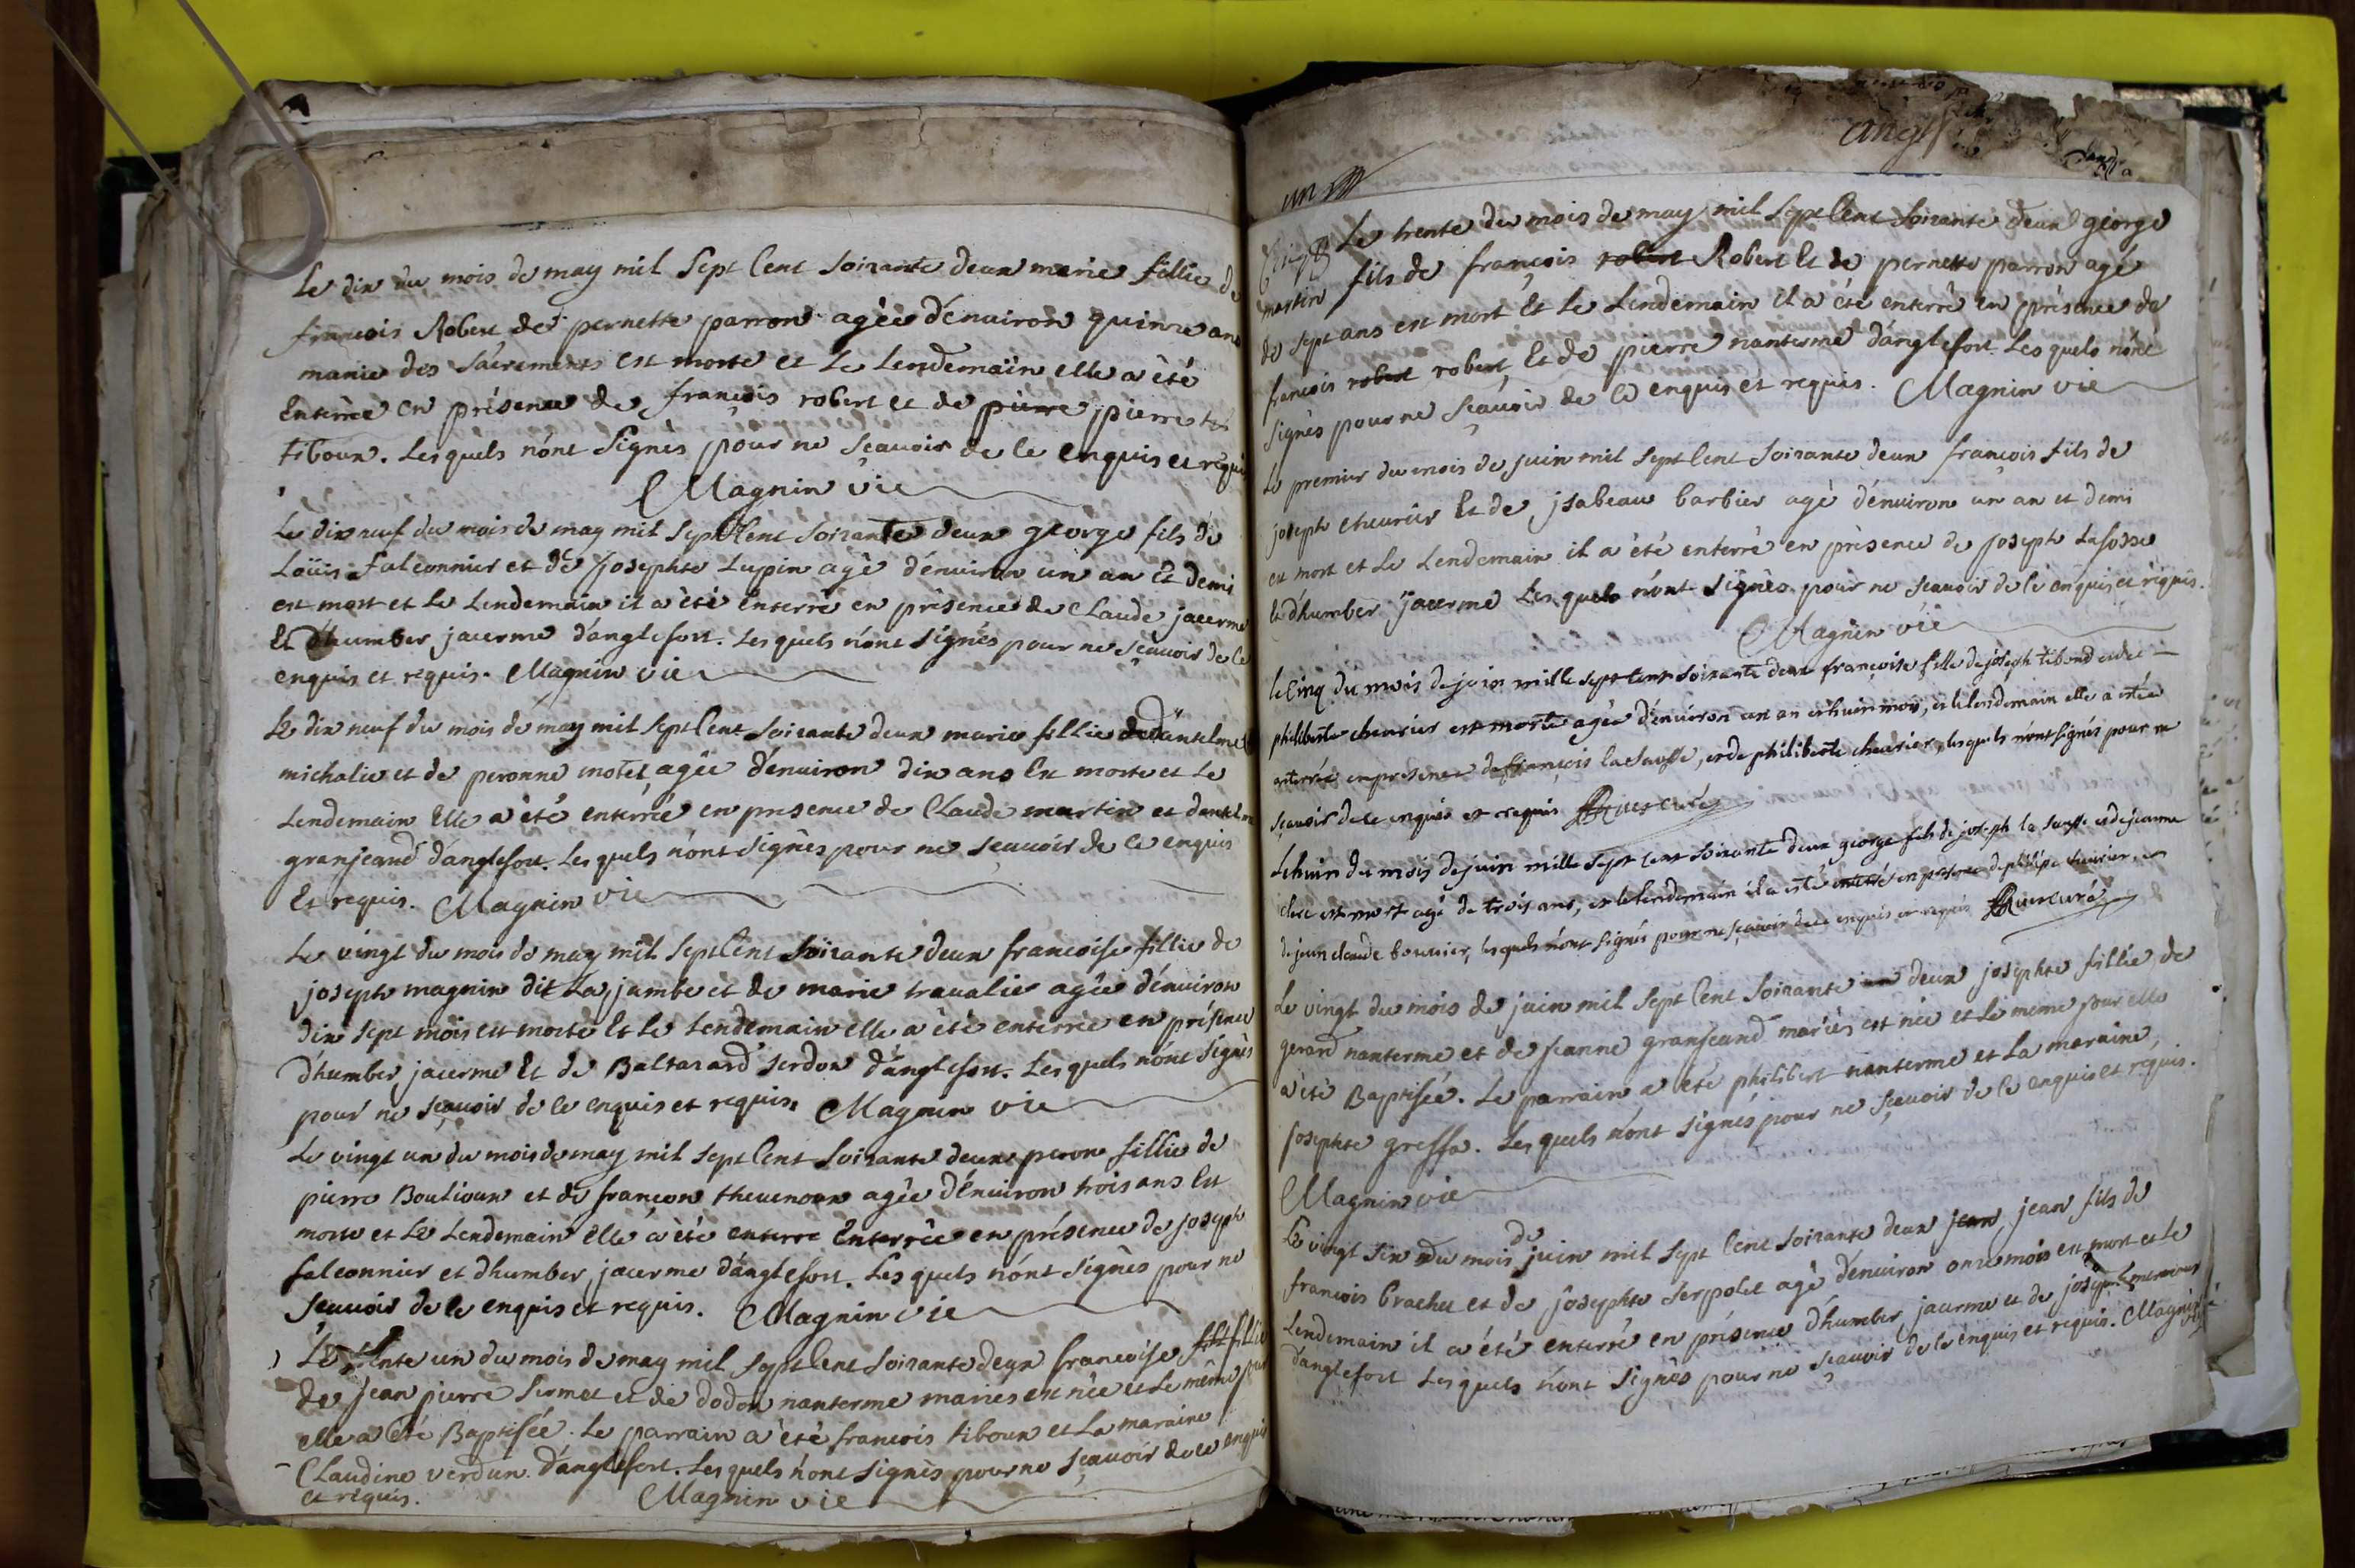 Le dix du mois de may mil sept cent soixante deux marie fillie de
françois Robert de pernette parron agée d'enuiron quinze ans
manie des sacrements est morte et le lendemain elle a été
enterrée en présence de françois robert et de pierre pierre
tiboux. Lesquels n'ont signés pour ne sçauoir de ce enquis et requis
Magnin vic
Le dix neuf du mois de may mil sept cent soixante deux george fils de
Loüis falconnier et de josephte Lupin agé d'enuiron un an et demi
est mort et le lendemain il a été enterré en présence de Claude jacerme
Et d'humber jacerme d'anglefort. Lesquels n'ont signés pour ne sçauoir de ce
enquis et requis. Magnin vic
Le dix neuf du mois de may mil sept cent soixante deux marie fillie d'anselme
michalie et de peronne motet agée d'enuiron dix ans est morte et le
lendemain elle a été enterrée en presence de Claude martin et d'antelme
granjeand d'anglefort. Lesquels n'ont signés pour ne sçauoir de ce enquis
Et requis. Magnin vic
Le vingt du mois de may mil sept cent soixante deux francoise fillie de
joseph magnin dit la jambe et de marie traualie agée d'enuiron
dix sept mois est morte et le lendemain elle a été enterrée en présence
d'humber jacerme Et de Baltazard serdon d'anglefort. Lesquels n'ont signés
pour ne sçauoir de ce enquis et requis. Magnin vic
Le vingt un du mois de may mil sept cent soixante deux peronne fillie de
pierre Boutioux et de françon theuenoux agée d'enuiron trois ans est
morte et le lendemain elle a été enterre Enterrée en présence de joseph
falconnier et d'humber jacerme d'anglefort. Lesquels n'ont signés pour ne
sçauoir de ce enquis et requis. Magnin vic
Le trente un du mois de may mil sept cent soixante deux francoise fillie
de jean pierre sermet et de dodon nanterme mariés est née et le même jour
elle a été Baptisée. Le parrain a été francois tiboux et la maraine
Claudine verdun d'anglefort. Lesquels n'ont signés pour ne sçauoir de ce enquis
et requis. Magnin vic
Le trente du mois de may mil sept cent soixante deux george
martin fils de françois robert Robert et de pernette parron agé
de sept ans est mort et le lendemain il a été enterré en présence de
francois robert robert et de pierre nanterme d'anglefort. Lesquels n'ont
signés pour ne sçauoir de ce enquis et requis. Magnin vic
Le premier du mois de juin mil sept cent soixante deux françois fils de
joseph cheurier et de jsabeau barbier agé d'enuiron un an et demi
est mort et le lendemain il a été enterré en présence de joseph lafosse
et d'humber jacerme Lesquels n'ont signés pour ne sçauoir de ce enquis et requis.
Magnin vic
le cinq du mois de juin mille sept cent soixante deux françoise fille de joseph tibond et de
philiberte cheurier est morte agée d'enuiron un an et huit mois, et le lendemain elle a estée
enterrée en presence de françois la sausse, et de philiberte cheurier, lesquels n'ont signés pour ne
sçauoir de ce enquis et requis curé
Le huit du mois de juin mille sept cent soixante deux george fils de joseph la sausse et de jeanne
clerc est mort agé de trois ans, et le lendemain il a esté enterré en presence de philipe cheurier, et
de jean claude bouuier, lesquels n'ont signés pour ne sçauoir de ce enquis et requis curé
Le vingt du mois de juin mil sept cent soixante un deux josephte fillie de
gerard nanterme et de jeanne granjeand mariés est née et le meme jour elle
a été Baptisée. Le parrain a été philibert nanterme et la maraine
josephte greffa. Lesquels n'ont signés pour ne sçauoir de ce enquis et requis.
Magnin vic
Le vingt six du mois de juin mil sept cent soixante deux jean jean fils de
francois brachet et de josephte serpolet agé d'enuiron onze mois est mort et le
lendemain il a été enterré en présence d'humber jacerme et de joseph
d'anglefort Lesquels n'ont signés pour ne sçauoir de ce enquis et requis. Magnin vic